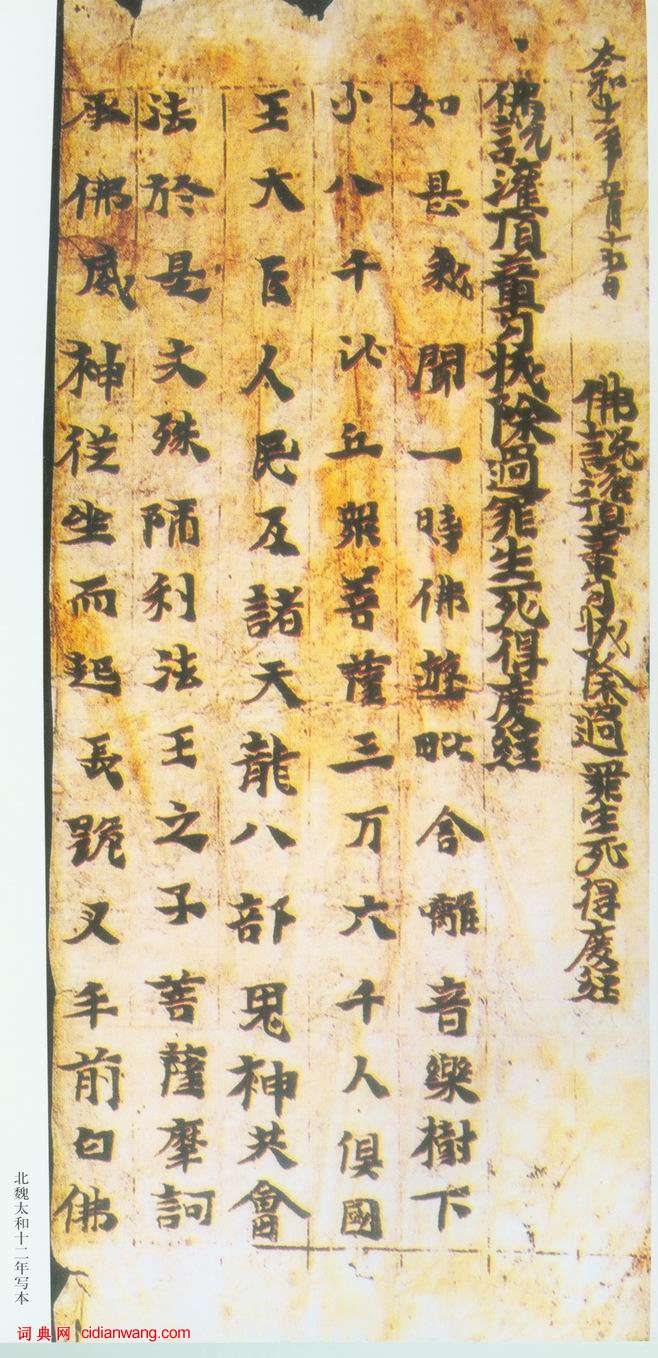 太和十二年五月十五日
佛說灌頂章句拔除過罪生死得度經
佛說灌頂章句拔除過罪生死得度經
如是我聞一時佛遊毗舍離音樂樹下
八千比丘衆菩薩三万六千人俱國
王大臣人民及諸天龍八部鬼神共會
法於是文殊師利法王之子菩薩摩訶
承佛威神從坐而起長跪叉手前白佛
北魏太和十二年写本
词典网 cidianwang.com